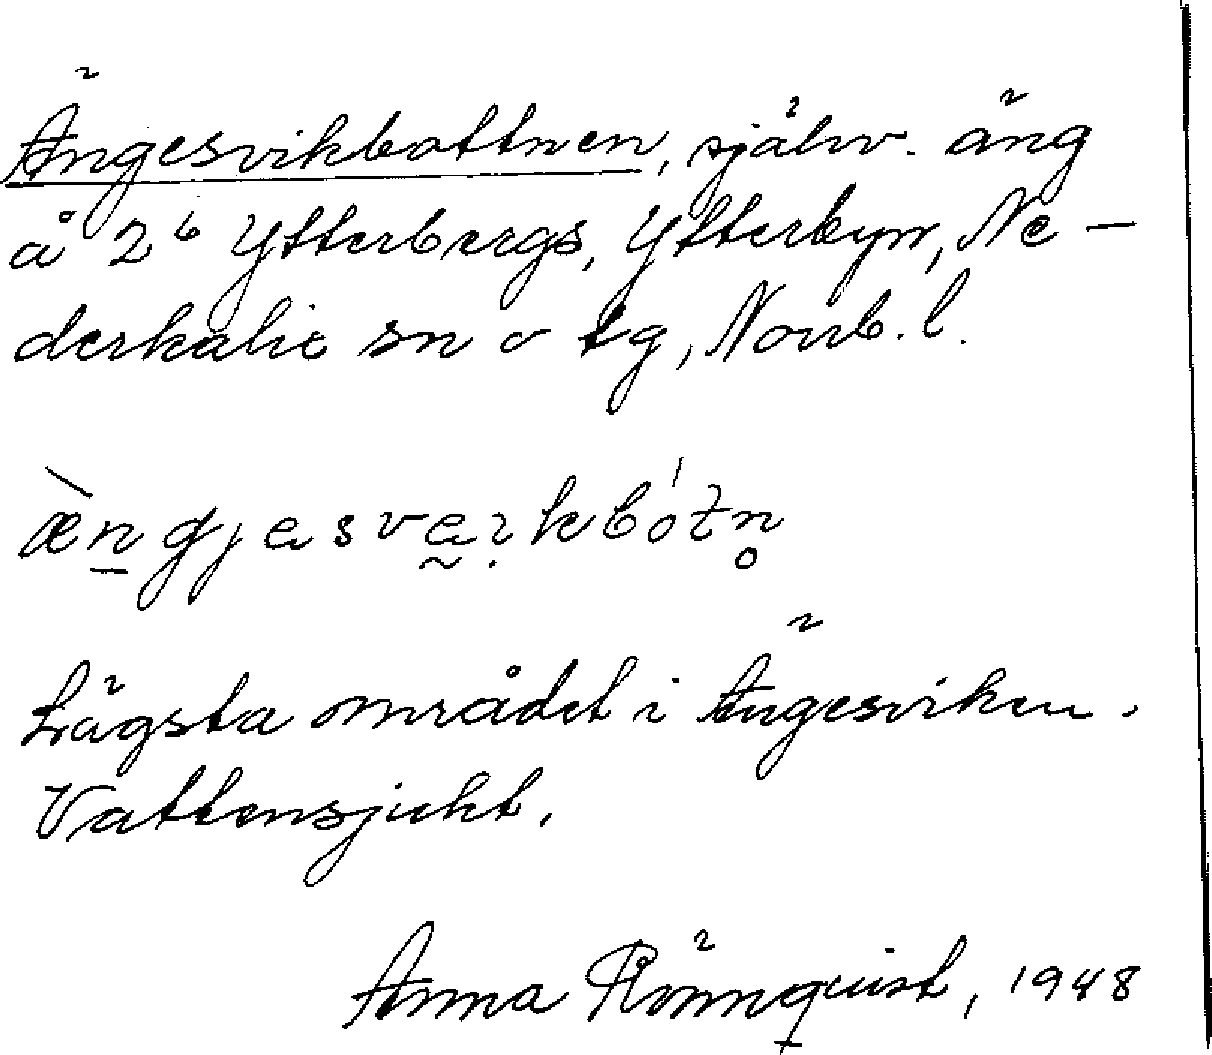 Ängesvikbottnen, själv. äng
å 2⁶ Ytterbergs, Ytterbyn, Ne-
derkalix sn o tg, Norrb. l.
æ̀n̲gjesvḛạrkbo̍tn̥
Lägsta området i Ängesviken.
Vattensjukt.
Anna Rönnquist, 1948